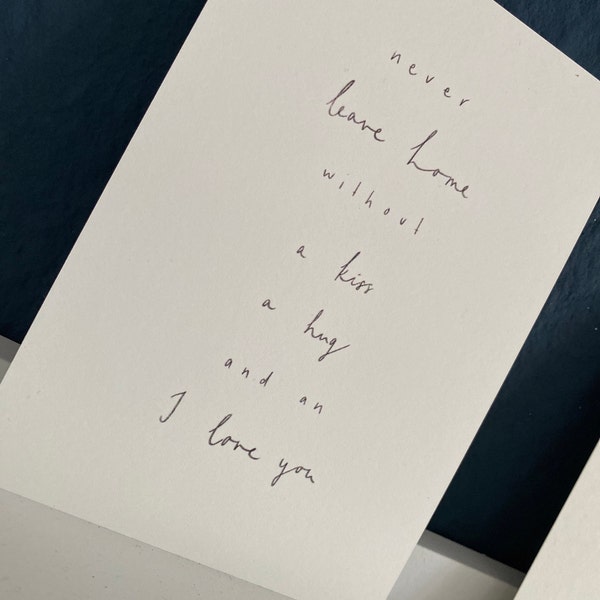 never
leave home
without
a kiss
a hug
and an
I love you